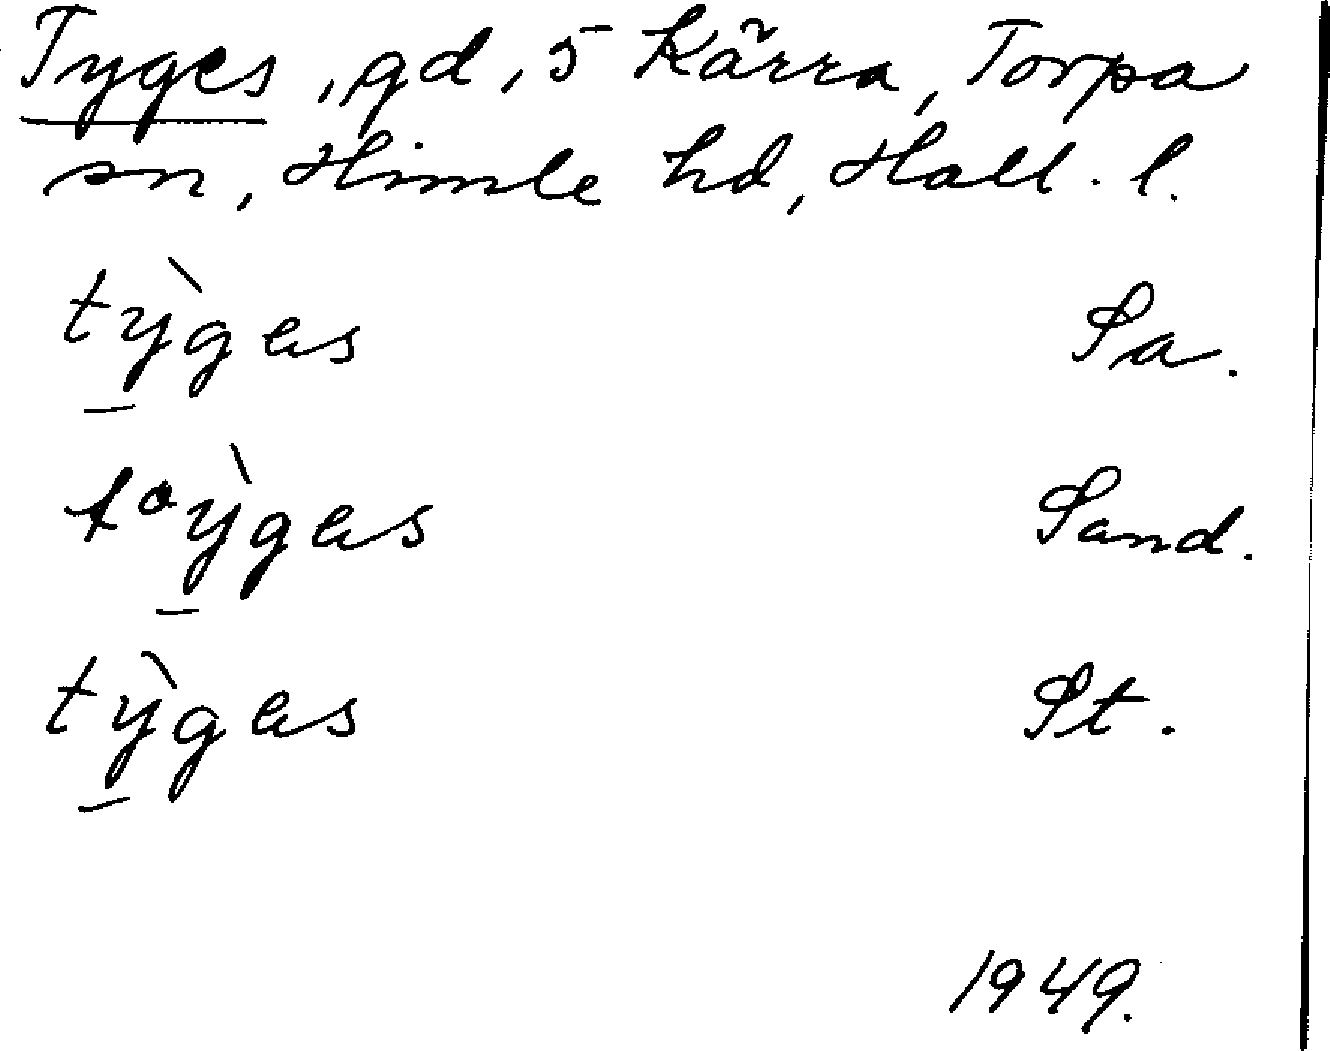 Tyges, gd, 5 Kärra, Torpa
sn, Himle hd, Hall. l.
tỳgəs Sa.
tᵒỳgəs Sand.
tỳgəs St.
1949.